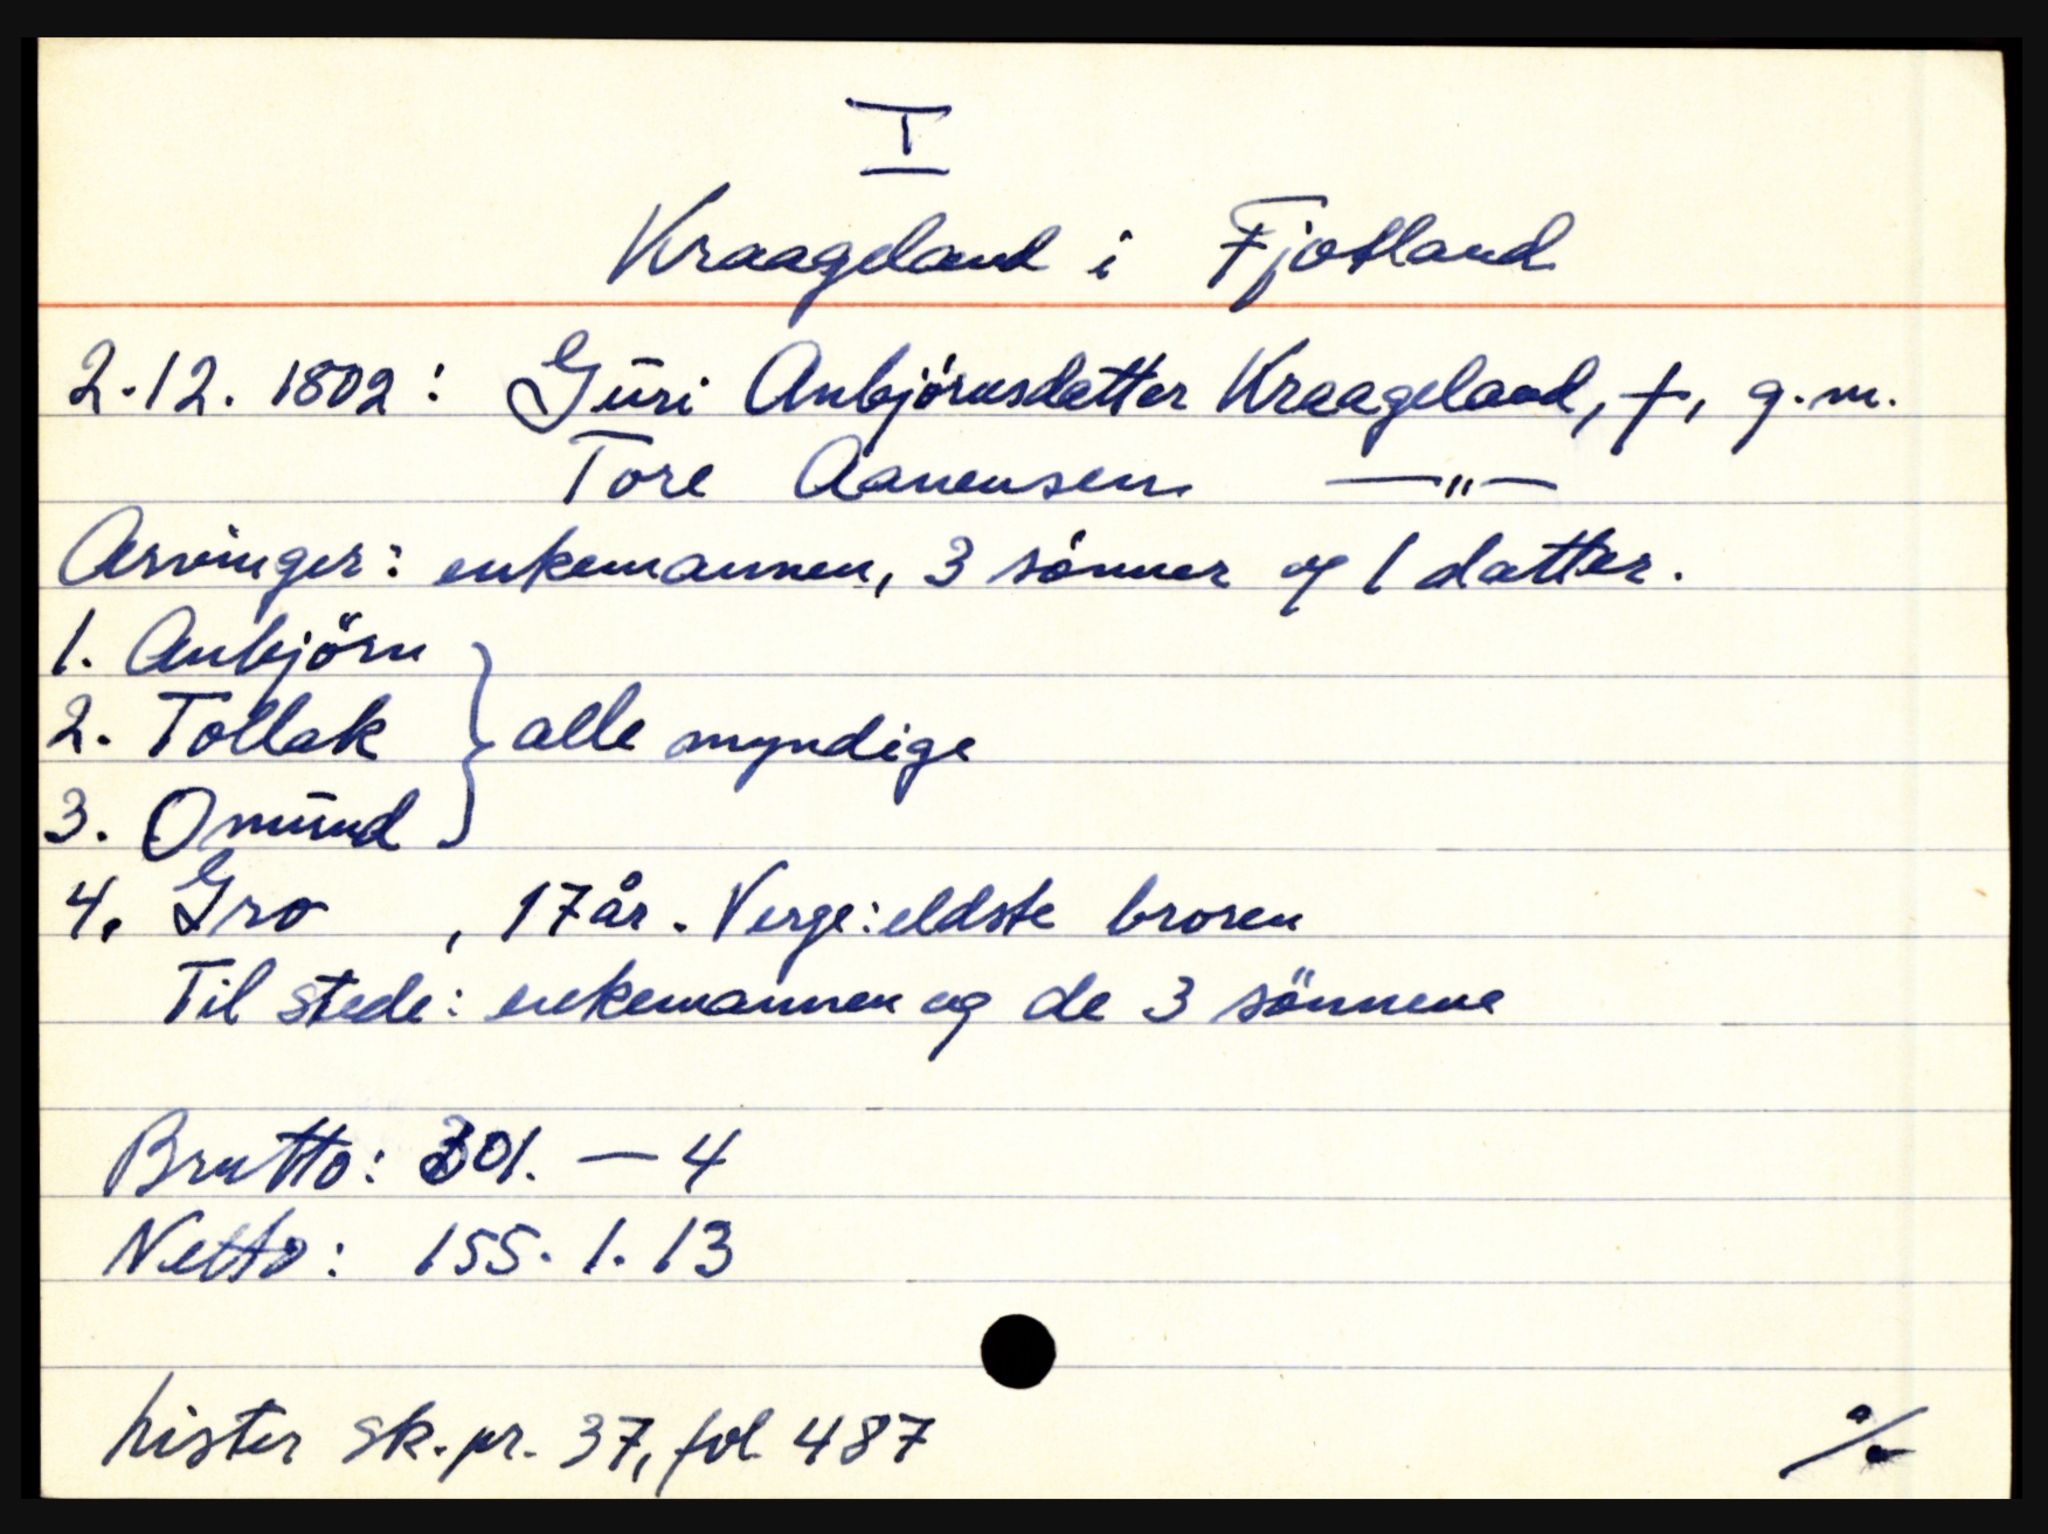 I
Kraageland i Fjotland
2.12. 1802: Guri Anbjörnsdatter Kraageland, †, g.m.
Tore Aanensen —"—
Arvinger: enkemannen, 3 sönner og 1 datter.
1. Anbjörn
2. Tollak } alle myndige
3. Omund
4. Gro , 17 år. Verge: eldste broren
Til stede: enkemannen og de 3 sönnene
Brutto: 301. — 4
Netto: 155. 1. 13
Lister sk.pr. 37, fol 487